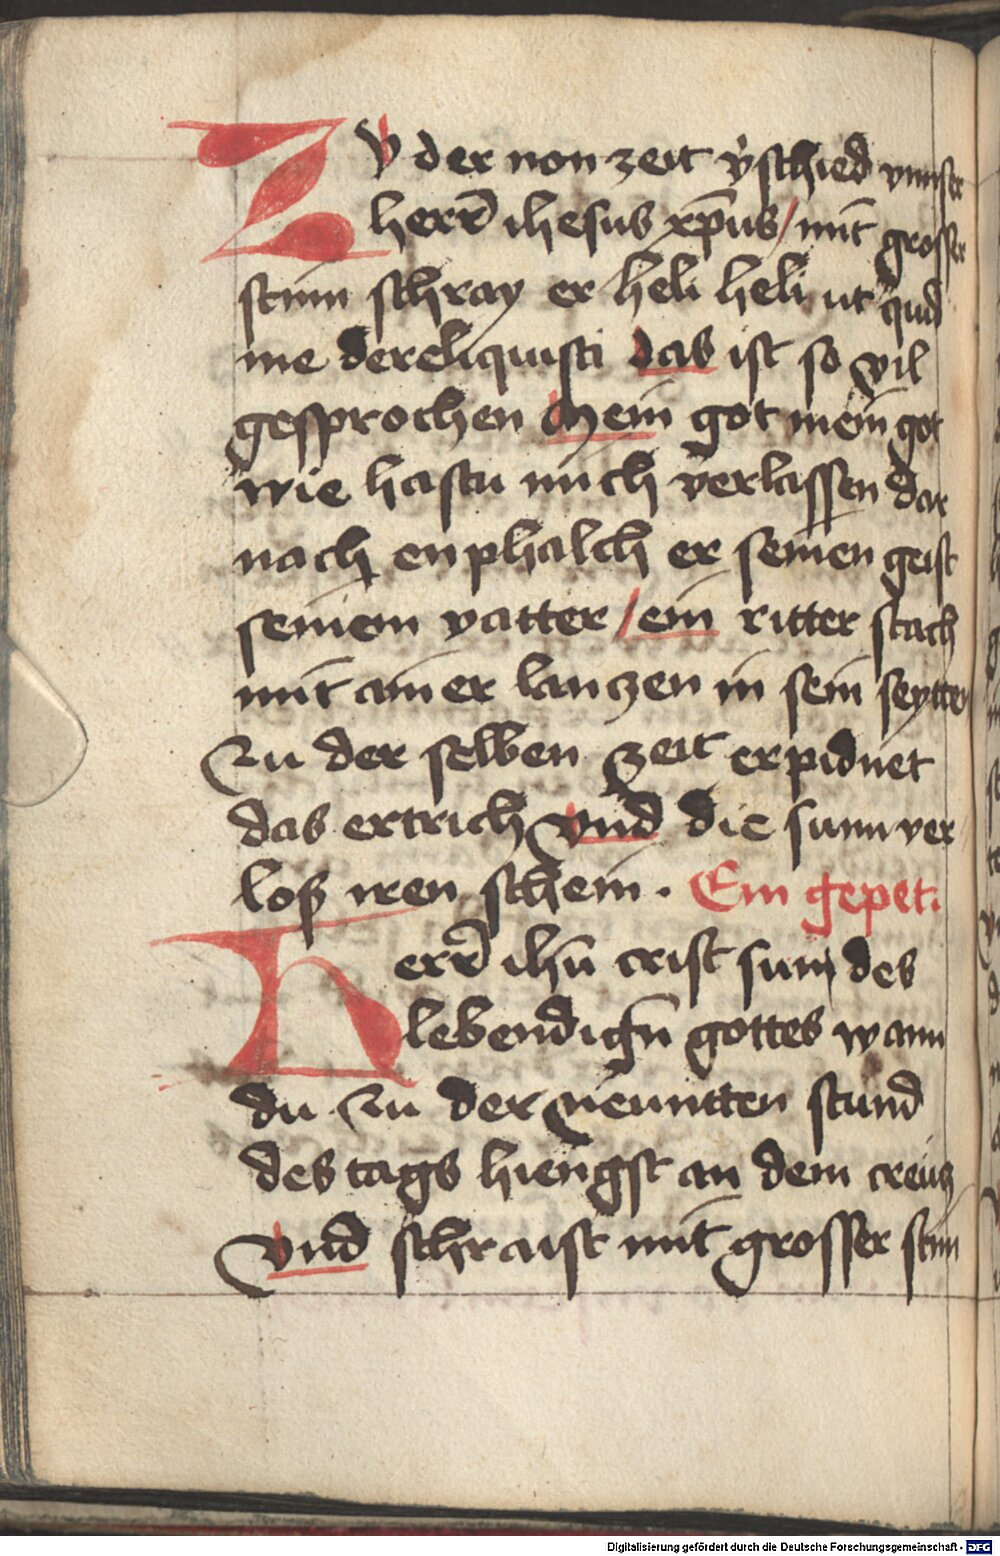 ZV der non zeit v̓schied vnnser
herr̄ ihesus xp̄us / mit grosser
stim schray er heli heli ut quid
me dereliquisti das ist so vil
gesprochen Mein got mein got
wie hastu mich verlassen dar
nach enphalch er seinen geist
seinem vatter / ein ritter stach
mit ainer lanczen in sein seytten
zu der selben zeit erpidnet
das ertrich vnd die sunn ver
loß iren schein . Ein gepet.
Herr̄ ihū crist sun des
lebendign̄ gottes wann
du zu der neuntten stund
des tags hiengst an dem creücz
vnd schraist mit grosser stim
Digitalisierung gefördert durch die Deutsche Forschungsgemeinschaft - DFG